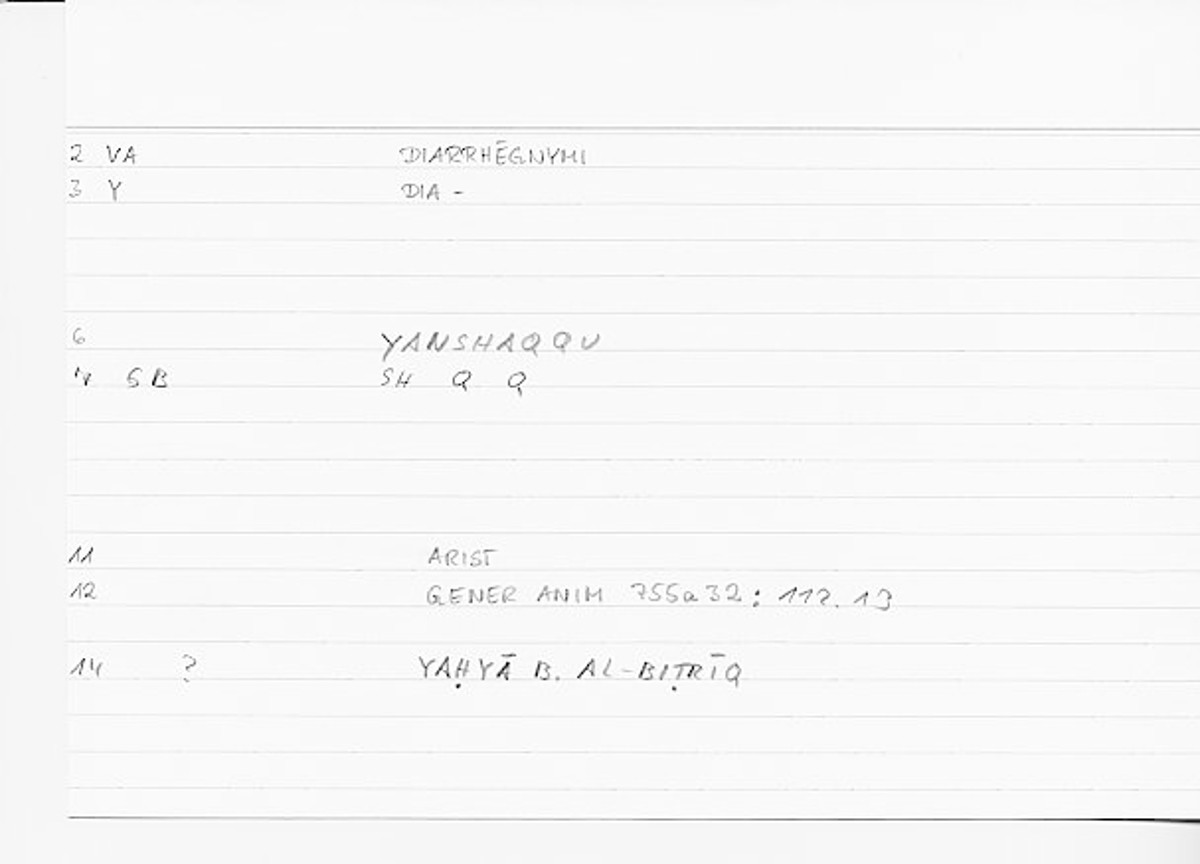 2 VA DIARRHĒGNYMI
3 Y DIA -
6 YANSHAQQU
SH Q Q
11 ARIST
12 GENER ANIM 755a32 : 112.13
14 ? YAḤYĀ B. AL-BIṬRĪQ